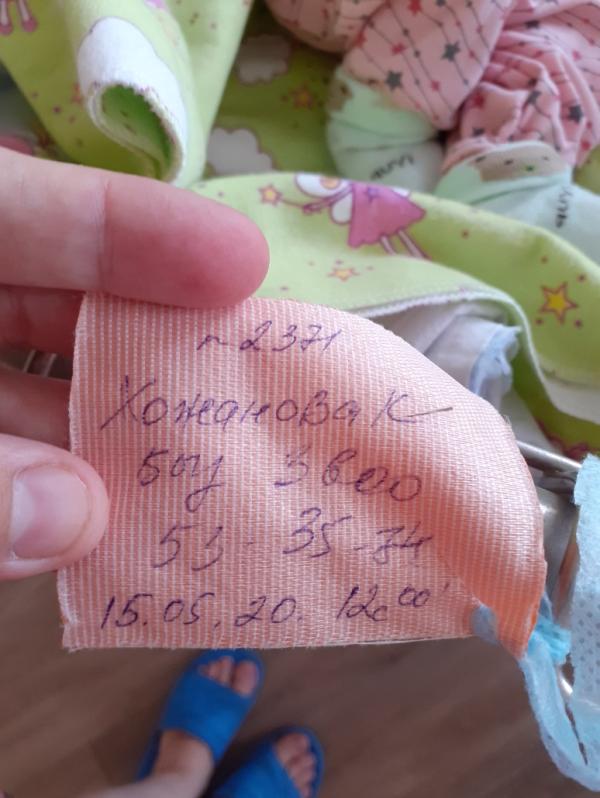 n 2371
Хожанова К
боу 3800
53-35-34
15.05.20. 12с 00'